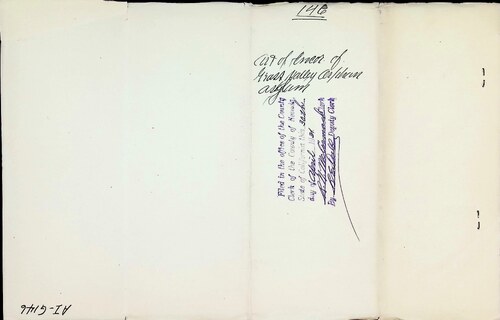 146
Art of Incor of
Grass Valley Orphan
Asylum
Filed in the office of the County
Clerk of the County of Nevada
State of California this
day of April
Clerk
By Deputy Clerk
AI-G146